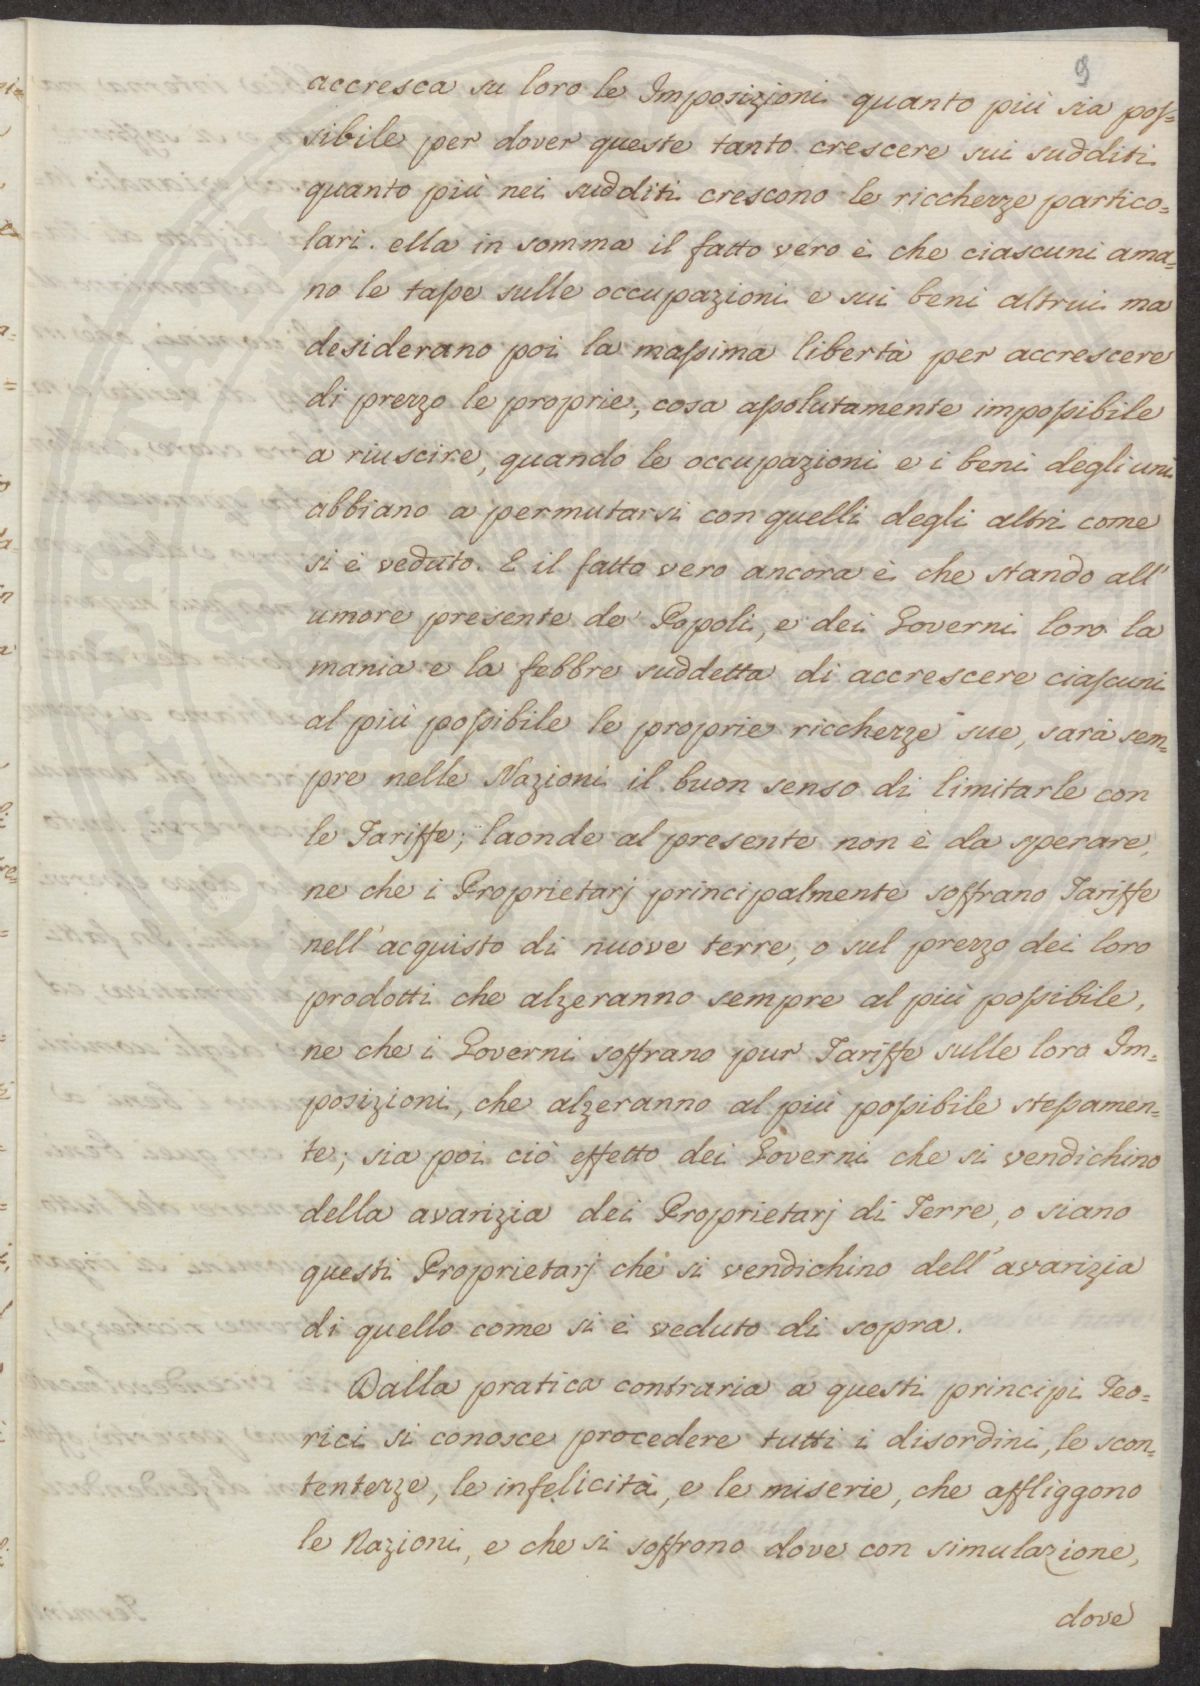 9
accresca su loro le Imposizioni quanto più sia pos=
sibile per dover queste tanto crescere sui sudditi
quanto più nei sudditi crescono le ricchezze partico=
lari. ella in somma il fatto vero è che ciascuni ama=
no le tasse sulle occupazioni e sui beni altrui ma
desiderano poi la massima libertà per accrescere
di prezzo le proprie, cosa assolutamente impossibile
a riuscire, quando le occupazioni e i beni degli uni
abbiano a permutarsi con quelli degli altri come
si è veduto. E il fatto vero ancora è che stando all'
umore presente de' Popoli, e dei Governi loro la
mania e la febbre suddetta di accrescere ciascuni
al più possibile le proprie ricchezze sue, sarà sem=
pre nelle Nazioni il buon senso di limitarle con
le Tariffe; laonde al presente non è da sperare,
ne che i Proprietarj principalmente soffrano Tariffe
nell'acquisto di nuove terre, o sul prezzo dei loro
prodotti che alzeranno sempre al più possibile,
ne che i Governi soffrano pur Tariffe sulle loro Im=
posizioni, che alzeranno al più possibile stessamen=
te; sia poi ciò effetto dei Governi che si vendichino
della avarizia dei Proprietarj di Terre, o siano
questi Proprietarj che si vendichino dell'avarizia
di quello come si è veduto di sopra.
Dalla pratica contraria a questi principi Teo=
rici si conosce procedere tutti i disordini, le scon=
tentezze, le infelicità, e le miserie, che affliggono
le Nazioni, e che si soffrono dove con simulazione,
dove